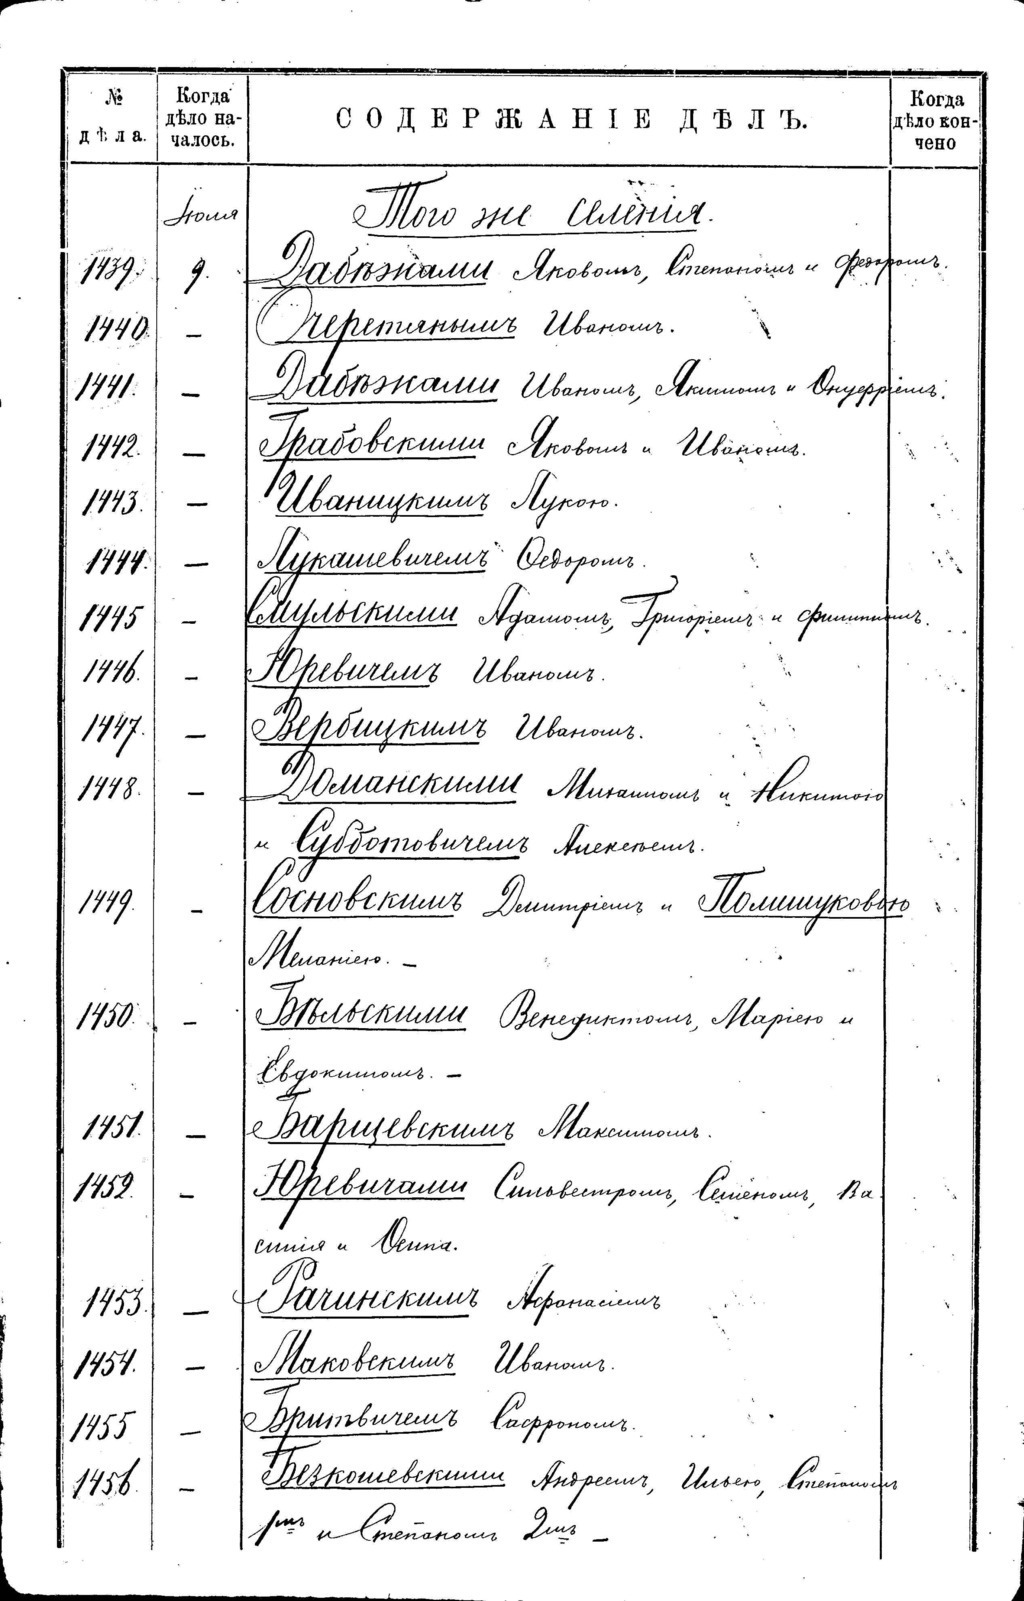 № дѣла. Когда дѣло началось. СОДЕРЖАНІЕ ДѢЛЪ. Когда дѣло кончено
Іюля Того же селенія.
1439. 9. Дабѣжами Яковомъ, Степаномъ и Федоромъ.
1440. — Черетянымъ Иваномъ.
1441. — Дабѣжами Иваномъ, Якимомъ и Онуфріемъ.
1442. — Грабовскими Яковомъ и Иваномъ.
1443. — Иваницкимъ Лукою.
1444. — Лукашевичемъ Ѳедоромъ.
1445 — Смульскими Адамомъ, Григоріемъ и Филиппомъ.
1446. — Юревичемъ Иваномъ.
1447. — Вербицкимъ Иваномъ.
1448. — Доманскими Михаиломъ и Никитою
и Субботовичемъ Алексѣемъ.
1449. — Сосновскимъ Дмитріемъ и Полищуковою
Меланіею. —
1450. — Бѣльскими Венедиктомъ, Маріею и
Евдокимомъ. —
1451. — Барщевскимъ Максимомъ.
1452. — Юревичами Сильвестромъ, Семеномъ, Ва
силія и Осипа.
1453. — Рачинскимъ Афанасіемъ
1454. — Маковскимъ Иваномъ.
1455 — Бритвичемъ Сафрономъ.
1456. — Безкошевскими Андреемъ, Ильею, Степаномъ
1мъ и Степаномъ 2мъ —